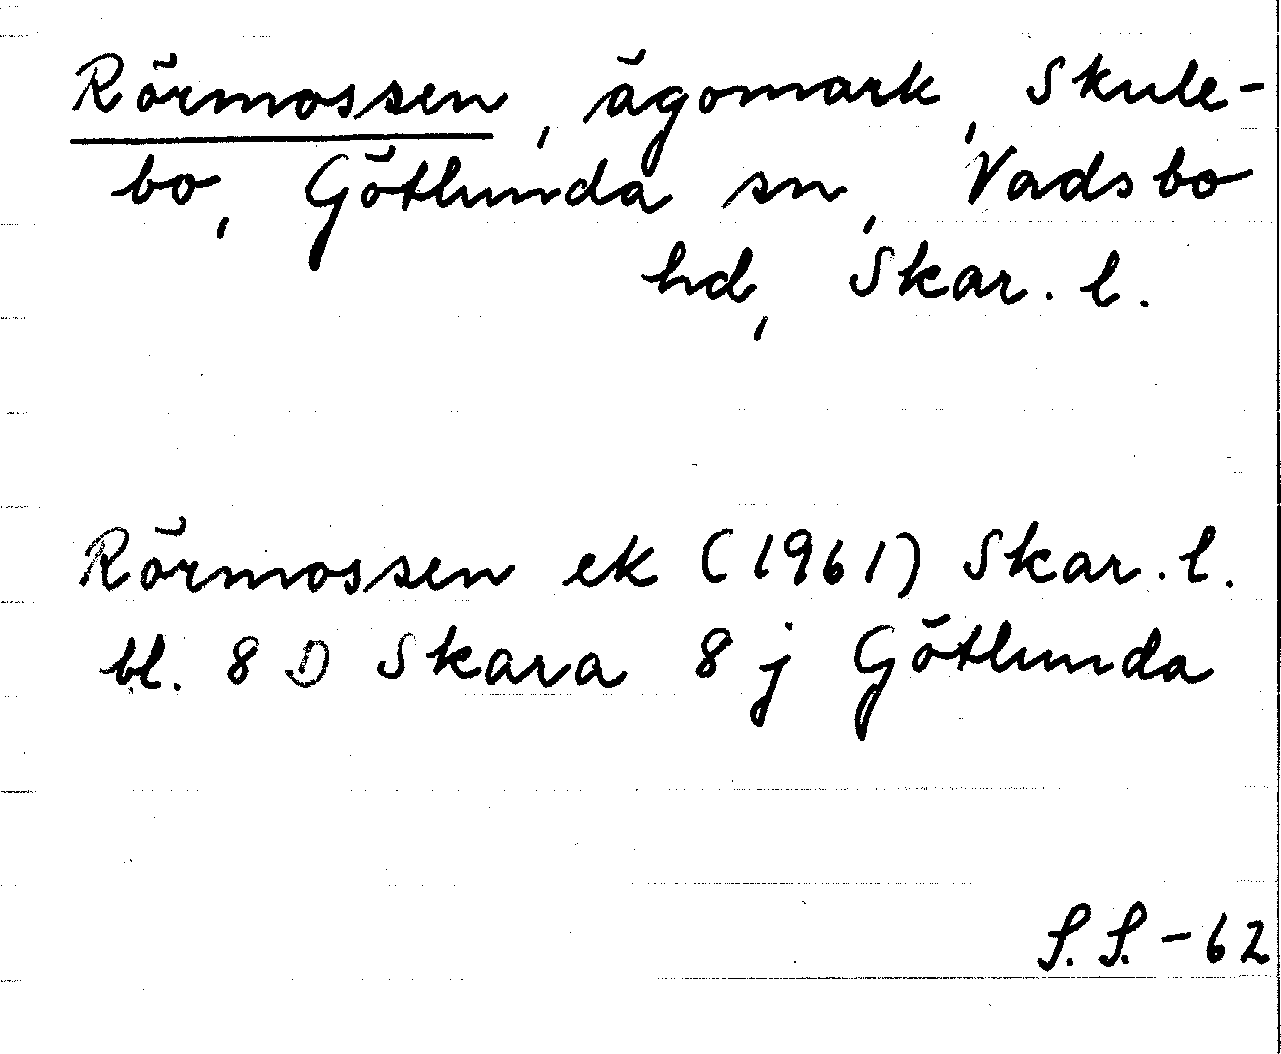 Rörmossen, ägomark, Skule-
bo, Götlunda sn, Vadsbo
hd, Skar. l.
Rörmossen ek (1961) Skar. l.
bl. 8 D Skara 8 j Götlunda
S. S. - 62